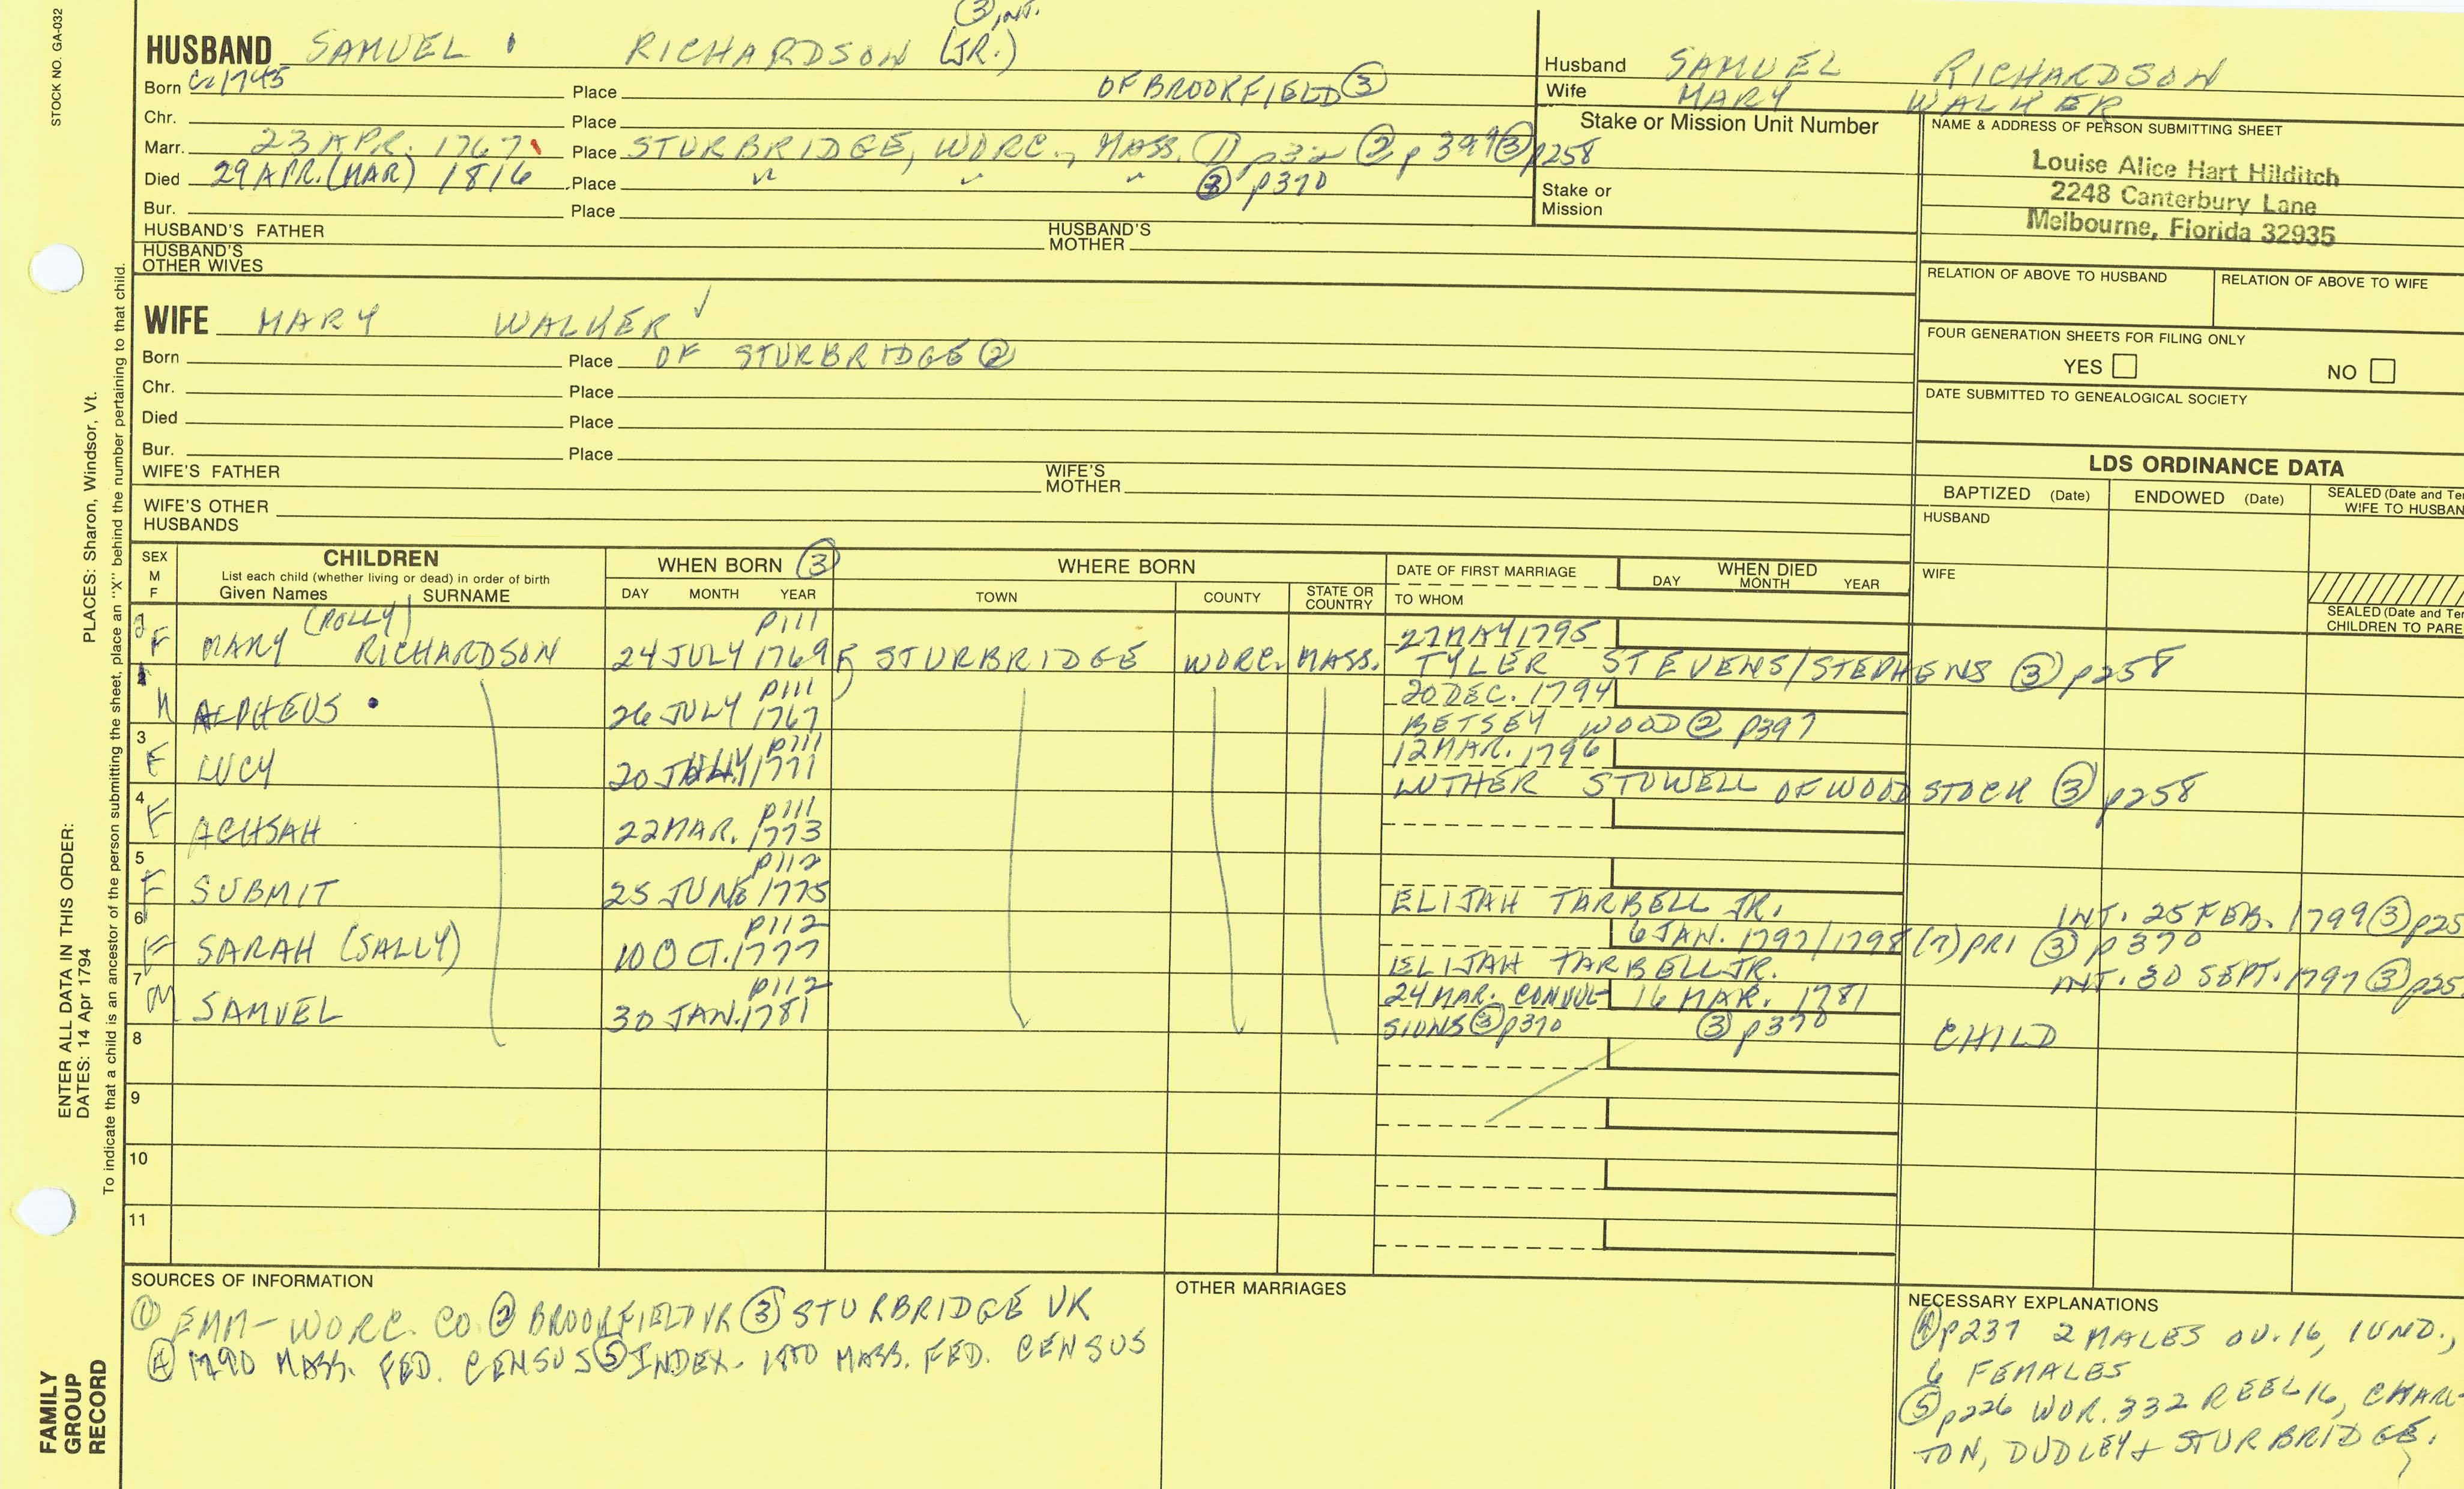 STOCK NO. GA-032
③ INT.
HUSBAND SAMUEL RICHARDSON (JR.)
Born Ca 1745 Place OF BROOKFIELD ③
Chr. Place
Marr. 23 APR. 1767 Place STURBRIDGE, WORC., MASS. ① p32 ② p397 ③ p258
Died 29 APR. (MAR) 1816 Place " " " ③ p370
Bur. Place
HUSBAND'S FATHER HUSBAND'S MOTHER
HUSBAND'S OTHER WIVES
Husband SAMUEL RICHARDSON
Wife MARY WALKER
Stake or Mission Unit Number
Stake or
Mission
NAME & ADDRESS OF PERSON SUBMITTING SHEET
Louise Alice Hart Hilditch
2248 Canterbury Lane
Melbourne, Florida 32935
RELATION OF ABOVE TO HUSBAND RELATION OF ABOVE TO WIFE
FOUR GENERATION SHEETS FOR FILING ONLY
YES NO
DATE SUBMITTED TO GENEALOGICAL SOCIETY
WIFE MARY WALKER ✓
Born Place OF STURBRIDGE ②
Chr. Place
Died Place
Bur. Place
WIFE'S FATHER WIFE'S MOTHER
WIFE'S OTHER HUSBANDS
LDS ORDINANCE DATA
BAPTIZED (Date) ENDOWED (Date) SEALED (Date and Te
WIFE TO HUSBAN
HUSBAND
WIFE
SEALED (Date and Te
CHILDREN TO PARE
SEX M F
CHILDREN
List each child (whether living or dead) in order of birth
Given Names SURNAME
WHEN BORN ③
DAY MONTH YEAR
WHERE BORN
TOWN COUNTY STATE OR COUNTRY
DATE OF FIRST MARRIAGE
TO WHOM
WHEN DIED
DAY MONTH YEAR
(POLLY) p111 27 MAY 1795
F MARY RICHARDSON 24 JULY 1769 STURBRIDGE WORC. MASS. TYLER STEVENS/STEPHENS ③ p258
p111 20 DEC. 1794
M ALPHEUS 26 JULY 1767 BETSEY WOOD ② p397
3 p111 12 MAR. 1796
F LUCY 20 1771 LUTHER STOWELL OF WOODSTOCK ③ p258
4 p111
F ACHSAH 22 MAR. 1773
5 p112
F SUBMIT 25 JUNE 1775 ELIJAH TARBELL JR. INT. 25 FEB. 1799 ③ p25
6 p112 6 JAN. 1797/1798 (?) PR1 ③ p370
F SARAH (SALLY) 10 OCT. 1777 ELIJAH TARBELL JR. INT. 30 SEPT. 1797 ③ p25
7 p112 24 MAR. CONVUL- 16 MAR. 1781
M SAMUEL 30 JAN. 1781 SIONS ③ p370 ③ p370 CHILD
8
9
10
11
SOURCES OF INFORMATION
① EMM- WORC. CO. ② BROOKFIELD VR ③ STURBRIDGE VR
④ 1790 MASS. FED. CENSUS ⑤ INDEX- 1800 MASS. FED. CENSUS
OTHER MARRIAGES
NECESSARY EXPLANATIONS
④ p237 2 MALES OV. 16, 1 UND.,
6 FEMALES
⑤ p226 WOR. 332 REEL 16, CHARL-
TON, DUDLEY + STURBRIDGE.
PLACES: Sharon, Windsor, Vt.
ENTER ALL DATA IN THIS ORDER:
DATES: 14 Apr 1794
To indicate that a child is an ancestor of the person submitting the sheet, place an "X" behind the number pertaining to that child.
FAMILY
GROUP
RECORD